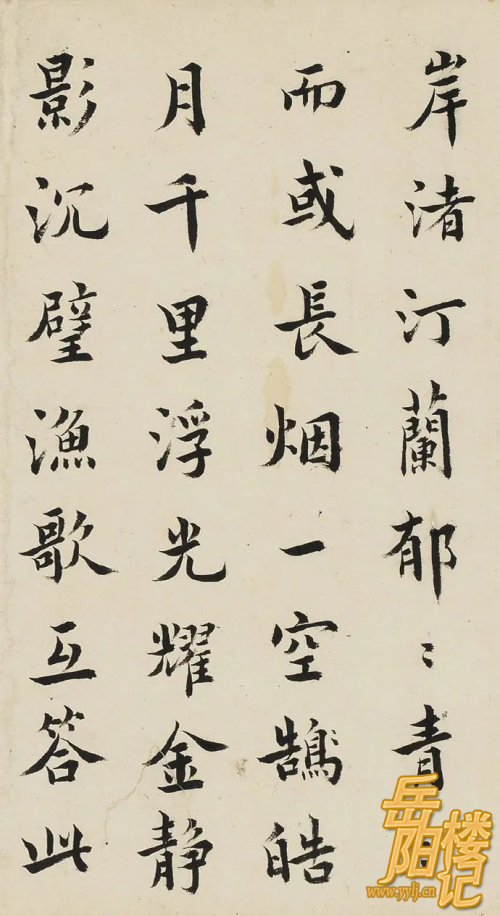 岸渚汀蘭郁〻青〻
而或長烟一空鵠皓
月千里浮光耀金静
影沉璧漁歌互答此
岳阳楼记
www.yylj.cn